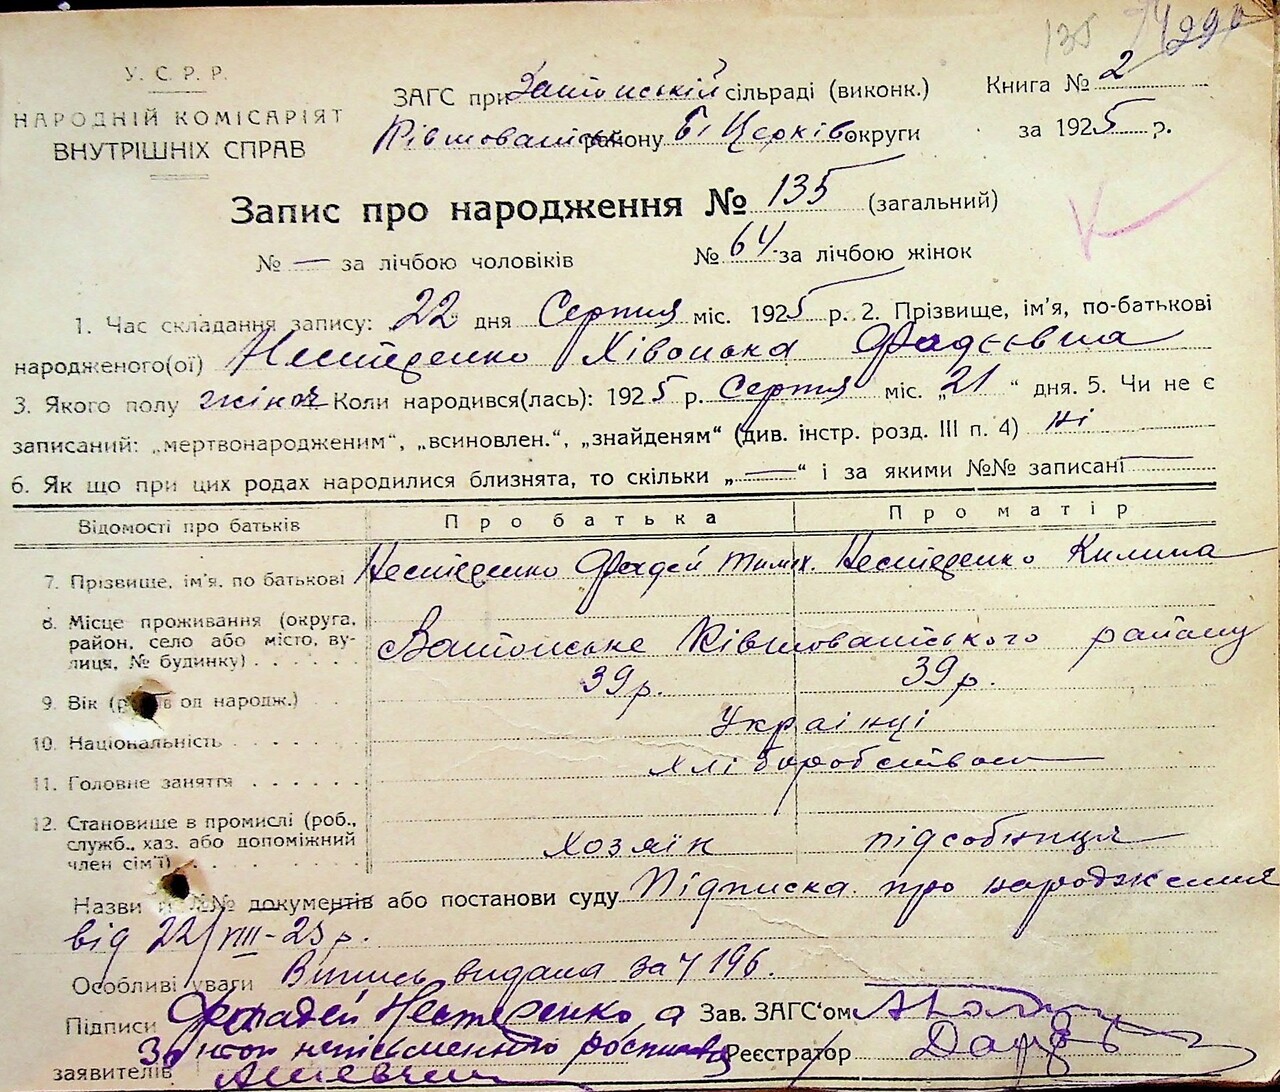 135
У. С. Р. Р.
НАРОДНІЙ КОМІСАРІЯТ
ВНУТРІШНІХ СПРАВ
ЗАГС при сільраді (виконк.)
Книга № 2
району Б. Церків округи
за 1925 р.
Запис про народження № 135 (загальний)
№ — за лічбою чоловіків № 64 за лічбою жінок
1. Час складання запису: 22 дня Серпня міс. 1925 р. 2. Прізвище, ім'я, по-батькові
народженого(ої) Нестеренко Хівонька Фадєєвна
3. Якого полу жіноч Коли народився(лась): 1925 р. Серпня міс. „21“ дня. 5. Чи не є
записаний: „мертвонародженим“, „всиновлен.“, „знайденям“ (див. інстр. розд. III п. 4) Ні
6. Як що при цих родах народилися близнята, то скільки „—“ і за якими №№ записані —
Відомості про батьків Про батька Про матір
7. Прізвище, ім'я, по батькові Нестеренко Фадей Тимх. Нестеренко Килина
8. Місце проживання (округа,
район, село або місто, ву-
лиця, № будинку) району
9. Вік (років од народж.) 39 р. 39 р.
10. Національність Українці
11. Головне заняття хліборобством
12. Становище в промислі (роб.,
служб., хаз. або допоміжний
член сім'ї) Хозяїн підсобниця
Назви й №№ документів або постанови суду Підписка про народження
від 22/VIII-25 р.
Особливі уваги Випись видана за ч 196.
Підписи Фадей Нестеренко а Зав. ЗАГС'ом
За непісьменного Реєстратор
заявителів